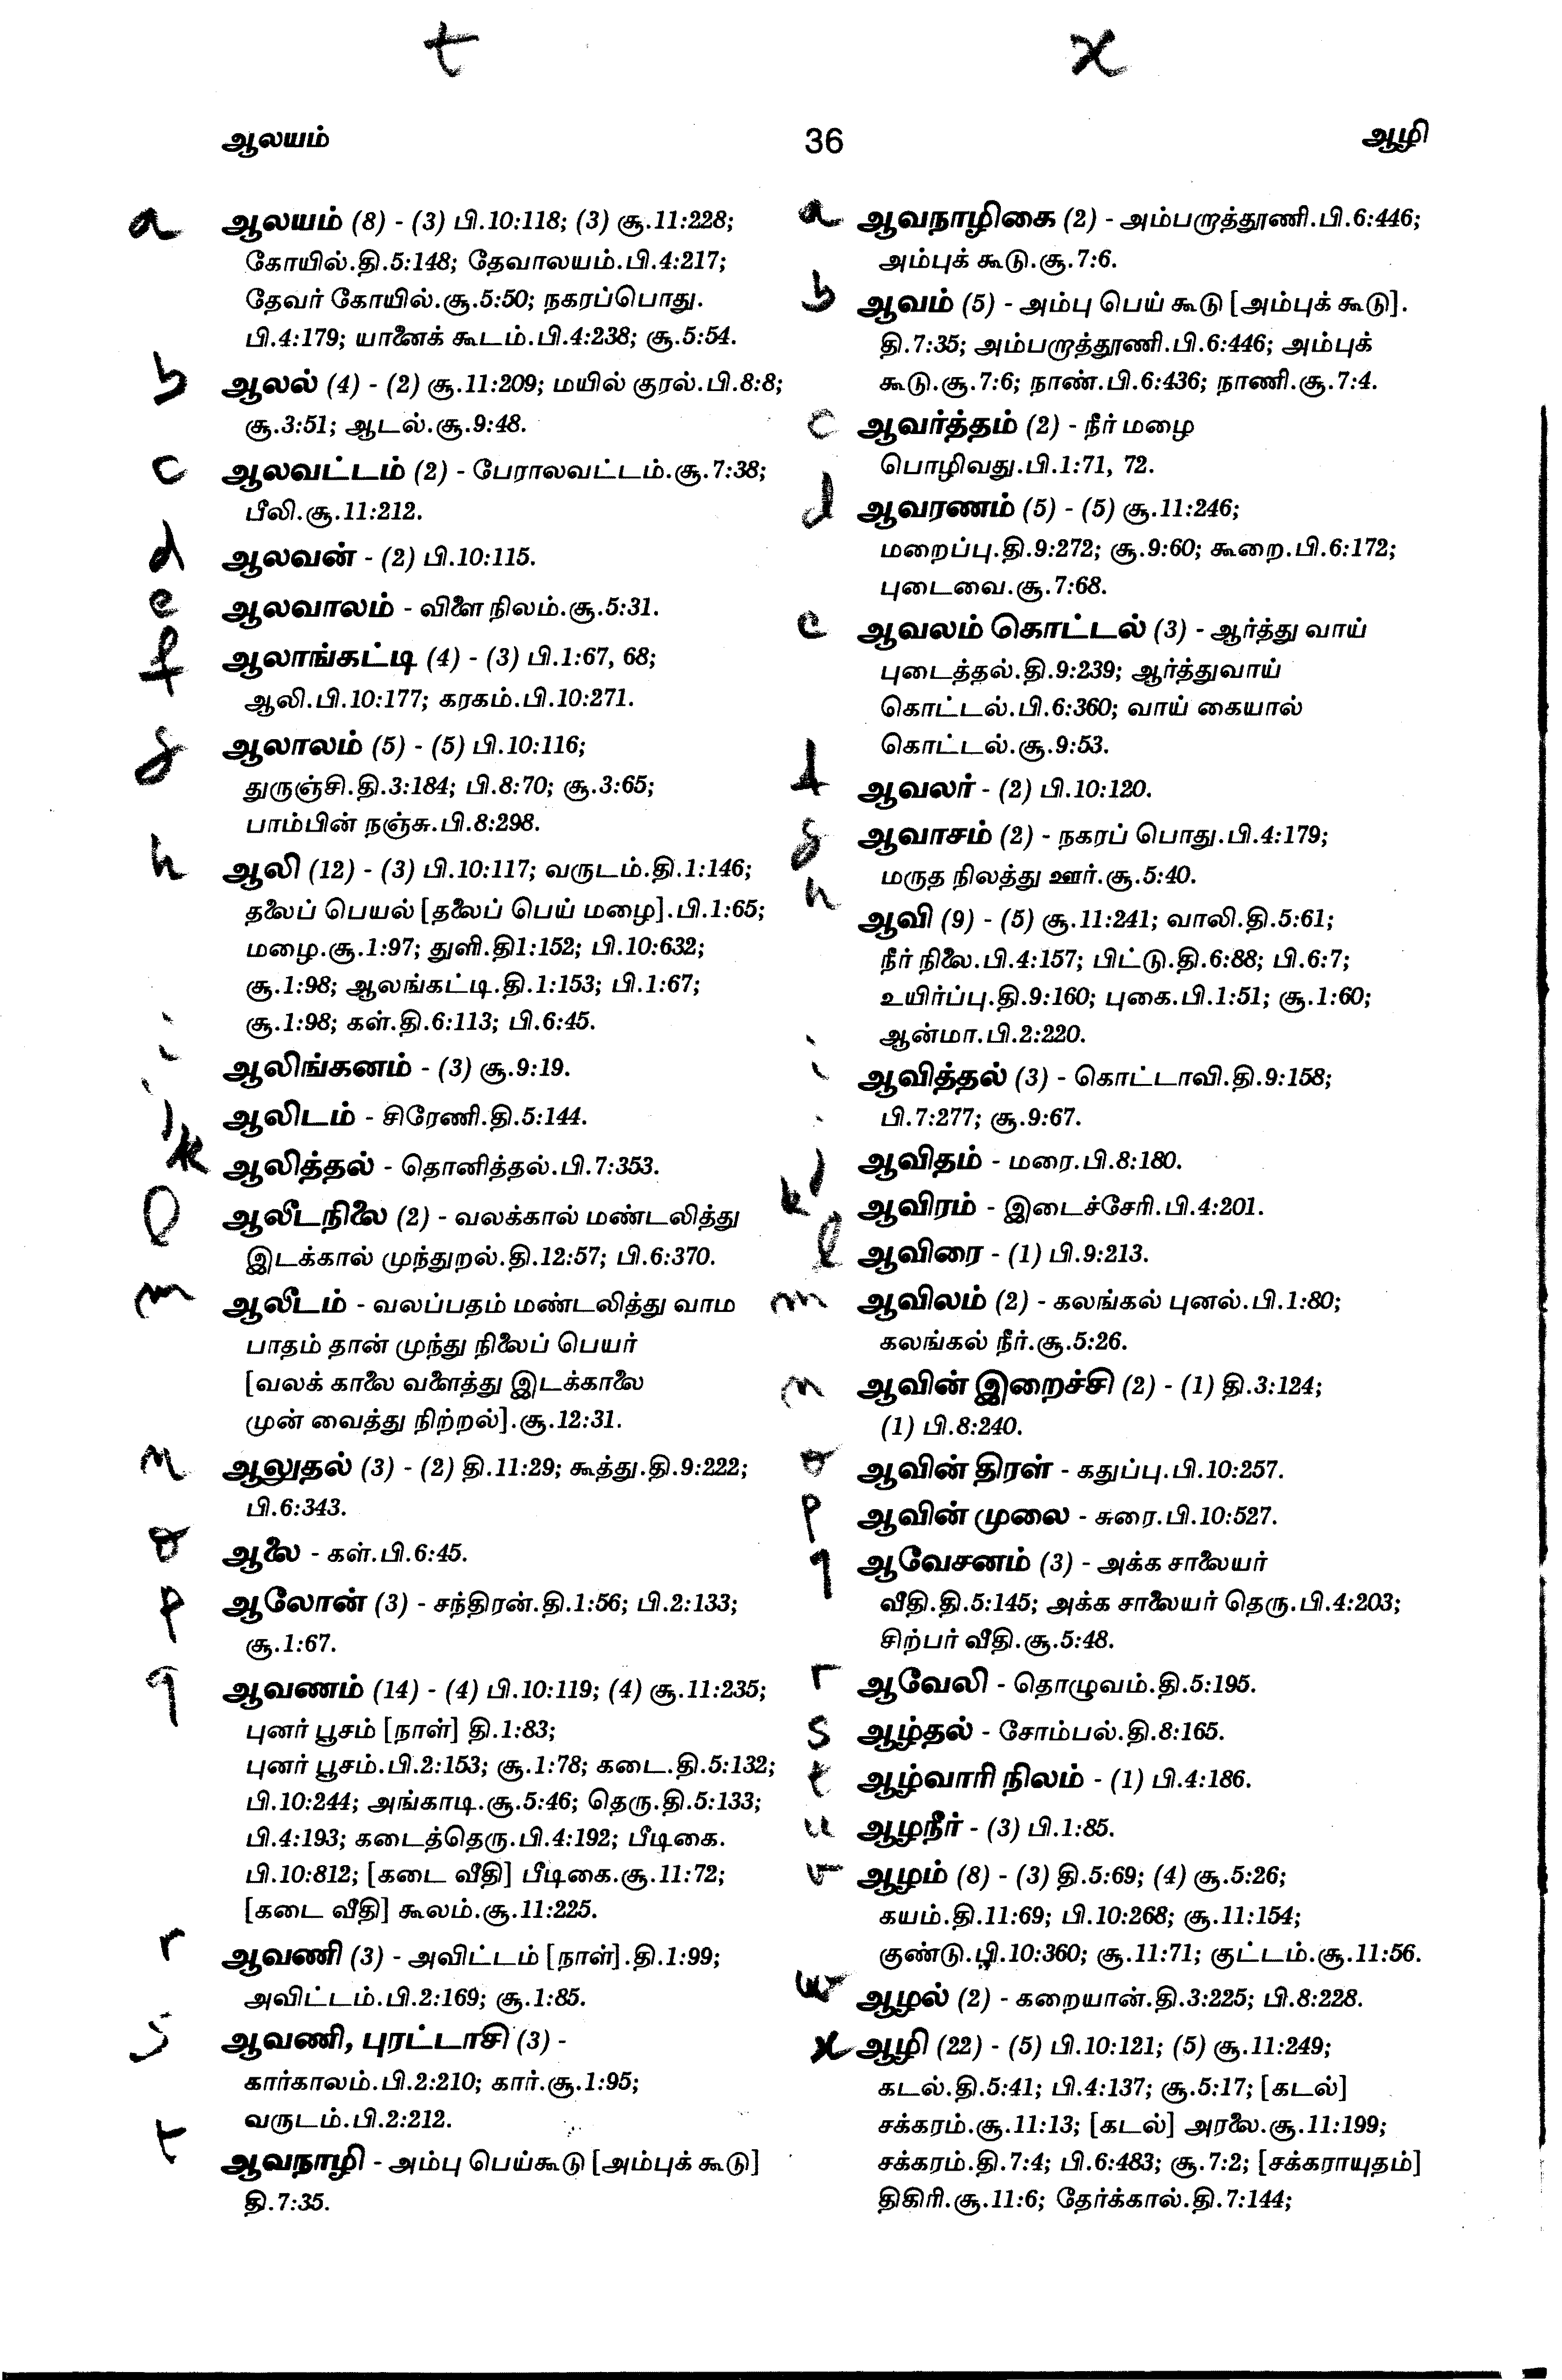 t x
ஆலயம் 36 ஆழி
a ஆலயம் (8) - (3) பி.10:118; (3) சூ.11:228;
கோயில்.தி.5:148; தேவாலயம்.பி.4:217;
தேவர் கோயில்.சூ.5:50; நகரப்பொது.
பி.4:179; யானைக் கூடம்.பி.4:238; சூ.5:54.
b ஆலல் (4) - (2) சூ.11:209; மயில் குரல்.பி.8:8;
சூ.3:51; ஆடல்.சூ.9:48.
c ஆலவட்டம் (2) - பேராலவட்டம்.சூ.7:38;
பீலி.சூ.11:212.
d ஆலவன் - (2) பி.10:115.
e ஆலவாலம் - விளை நிலம்.சூ.5:31.
f ஆலாங்கட்டி (4) - (3) பி.1:67, 68;
ஆலி.பி.10:177; கரகம்.பி.10:271.
g ஆலாலம் (5) - (5) பி.10:116;
துருஞ்சி.தி.3:184; பி.8:70; சூ.3:65;
பாம்பின் நஞ்சு.பி.8:298.
h ஆலி (12) - (3) பி.10:117; வருடம்.தி.1:146;
தலைப் பெயல் [தலைப் பெய் மழை].பி.1:65;
மழை.சூ.1:97; துளி.தி1:152; பி.10:632;
சூ.1:98; ஆலங்கட்டி.தி.1:153; பி.1:67;
சூ.1:98; கள்.தி.6:113; பி.6:45.
i ஆலிங்கனம் - (3) சூ.9:19.
j ஆலிடம் - சிரேணி.தி.5:144.
k ஆலித்தல் - தொனித்தல்.பி.7:353.
l ஆலீடநிலை (2) - வலக்கால் மண்டலித்து
இடக்கால் முந்துறல்.தி.12:57; பி.6:370.
m ஆலீடம் - வலப்பதம் மண்டலித்து வாம
பாதம் தான் முந்து நிலைப் பெயர்
[வலக் காலை வளைத்து இடக்காலை
முன் வைத்து நிற்றல்].சூ.12:31.
n ஆலுதல் (3) - (2) தி.11:29; கூத்து.தி.9:222;
பி.6:343.
o ஆலை - கள்.பி.6:45.
p ஆலோன் (3) - சந்திரன்.தி.1:56; பி.2:133;
சூ.1:67.
q ஆவணம் (14) - (4) பி.10:119; (4) சூ.11:235;
புனர் பூசம் [நாள்] தி.1:83;
புனர் பூசம்.பி.2:153; சூ.1:78; கடை.தி.5:132;
பி.10:244; அங்காடி.சூ.5:46; தெரு.தி.5:133;
பி.4:193; கடைத்தெரு.பி.4:192; பீடிகை.
பி.10:812; [கடை வீதி] பீடிகை.சூ.11:72;
[கடை வீதி] கூலம்.சூ.11:225.
r ஆவணி (3) - அவிட்டம் [நாள்].தி.1:99;
அவிட்டம்.பி.2:169; சூ.1:85.
s ஆவணி, புரட்டாசி (3) -
கார்காலம்.பி.2:210; கார்.சூ.1:95;
வருடம்.பி.2:212.
t ஆவநாழி - அம்பு பெய்கூடு [அம்புக் கூடு]
தி.7:35.
a ஆவநாழிகை (2) - அம்பறாத்தூணி.பி.6:446;
அம்புக் கூடு.சூ.7:6.
b ஆவம் (5) - அம்பு பெய் கூடு [அம்புக் கூடு].
தி.7:35; அம்பறாத்தூணி.பி.6:446; அம்புக்
கூடு.சூ.7:6; நாண்.பி.6:436; நாணி.சூ.7:4.
c ஆவர்த்தம் (2) - நீர் மழை
பொழிவது.பி.1:71, 72.
d ஆவரணம் (5) - (5) சூ.11:246;
மறைப்பு.தி.9:272; சூ.9:60; கூறை.பி.6:172;
புடைவை.சூ.7:68.
e ஆவலம் கொட்டல் (3) - ஆர்த்து வாய்
புடைத்தல்.தி.9:239; ஆர்த்துவாய்
கொட்டல்.பி.6:360; வாய் கையால்
கொட்டல்.சூ.9:53.
f ஆவலர் - (2) பி.10:120.
g ஆவாசம் (2) - நகரப் பொது.பி.4:179;
மருத நிலத்து ஊர்.சூ.5:40.
h ஆவி (9) - (5) சூ.11:241; வாலி.தி.5:61;
நீர் நிலை.பி.4:157; பிட்டு.தி.6:88; பி.6:7;
உயிர்ப்பு.தி.9:160; புகை.பி.1:51; சூ.1:60;
ஆன்மா.பி.2:220.
i ஆவித்தல் (3) - கொட்டாவி.தி.9:158;
பி.7:277; சூ.9:67.
j ஆவிதம் - மரை.பி.8:180.
k ஆவிரம் - இடைச்சேரி.பி.4:201.
l ஆவிரை - (1) பி.9:213.
m ஆவிலம் (2) - கலங்கல் புனல்.பி.1:80;
கலங்கல் நீர்.சூ.5:26.
n ஆவின் இறைச்சி (2) - (1) தி.3:124;
(1) பி.8:240.
o ஆவின் திரள் - கதுப்பு.பி.10:257.
p ஆவின் முலை - சுரை.பி.10:527.
q ஆவேசனம் (3) - அக்க சாலையர்
வீதி.தி.5:145; அக்க சாலையர் தெரு.பி.4:203;
சிற்பர் வீதி.சூ.5:48.
r ஆவேலி - தொழுவம்.தி.5:195.
s ஆழ்தல் - சோம்பல்.தி.8:165.
t ஆழ்வாரி நிலம் - (1) பி.4:186.
u ஆழநீர் - (3) பி.1:85.
v ஆழம் (8) - (3) தி.5:69; (4) சூ.5:26;
கயம்.தி.11:69; பி.10:268; சூ.11:154;
குண்டு.பி.10:360; சூ.11:71; குட்டம்.சூ.11:56.
w ஆழல் (2) - கறையான்.தி.3:225; பி.8:228.
x ஆழி (22) - (5) பி.10:121; (5) சூ.11:249;
கடல்.தி.5:41; பி.4:137; சூ.5:17; [கடல்]
சக்கரம்.சூ.11:13; [கடல்] அரலை.சூ.11:199;
சக்கரம்.தி.7:4; பி.6:483; சூ.7:2; [சக்கராயுதம்]
திகிரி.சூ.11:6; தேர்க்கால்.தி.7:144;